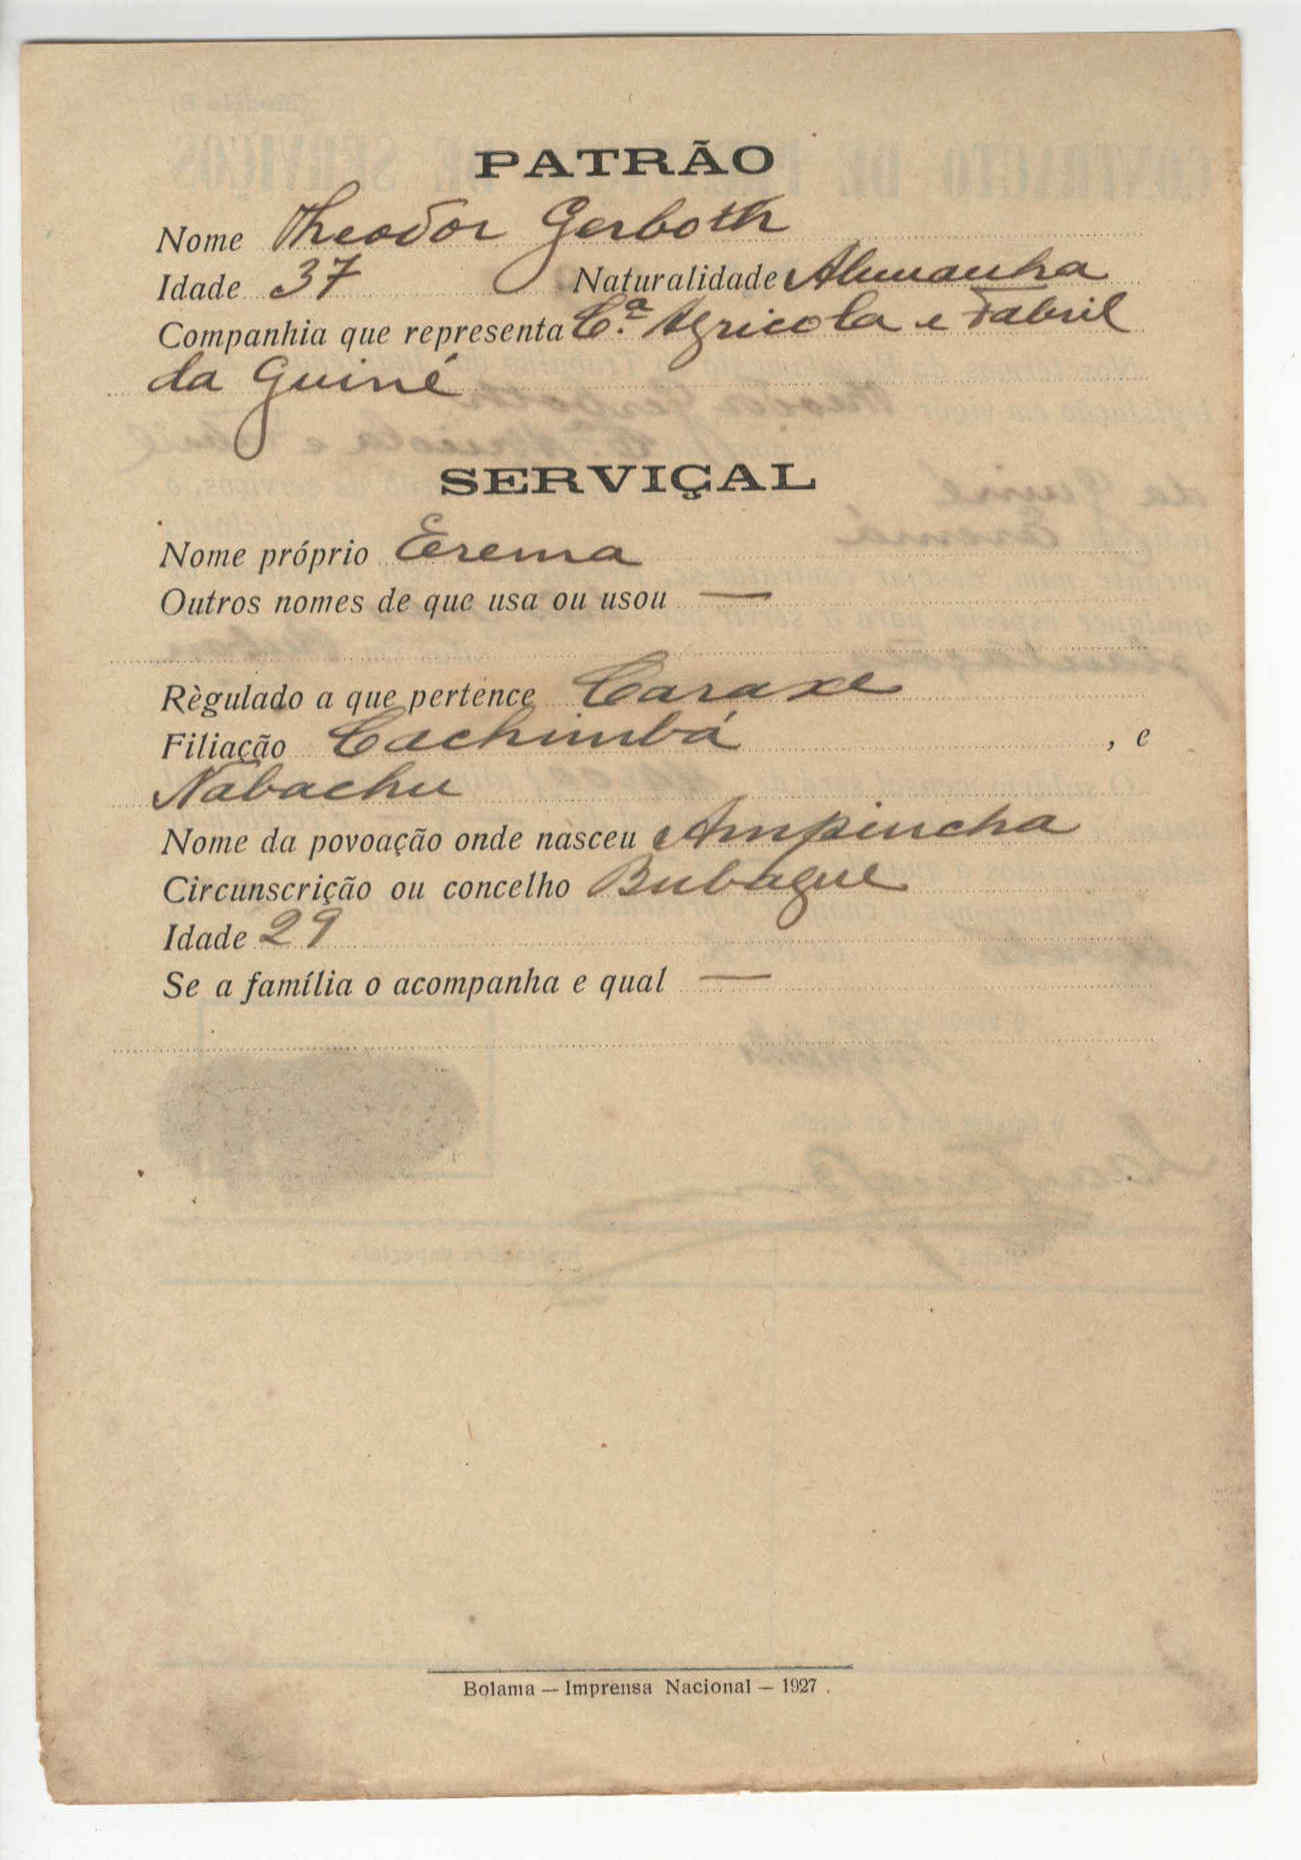 PATRÃO
Nome Theodor Gerboth
Idade 37 Naturalidade Alemanha
Companhia que representa C.ª Agricola e Fabril
da Guiné
SERVIÇAL
Nome próprio Eerema
Outros nomes de que usa ou usou —
Règulado a que pertence Caraxe
Filiação Cachimbá , e
Nabachu
Nome da povoação onde nasceu Ampincha
Circunscrição ou concelho Bubaque
Idade 29
Se a família o acompanha e qual —
Bolama — Imprensa Nacional — 1927